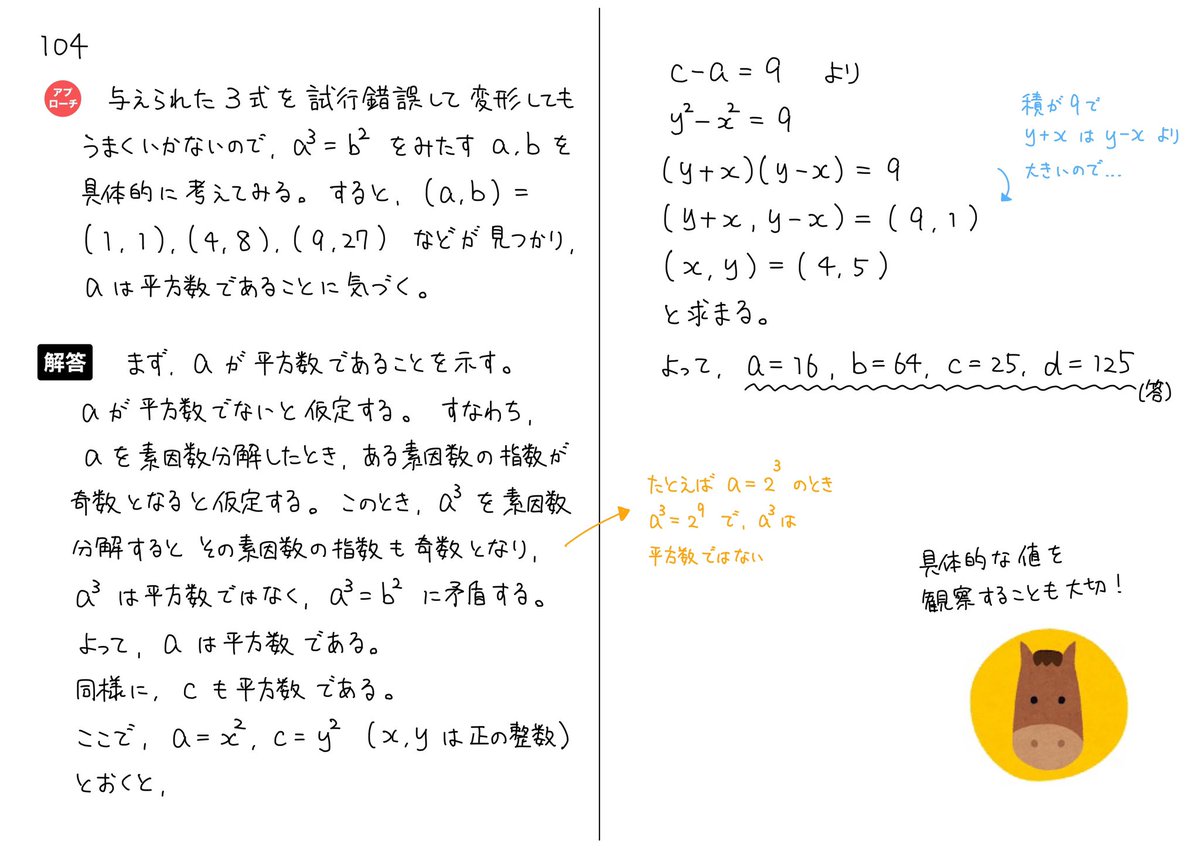 104
アプローチ 与えられた3式を試行錯誤して変形しても
うまくいかないので, a³=b² をみたす a,b を
具体的に考えてみる。すると, (a,b)=
(1,1),(4,8),(9,27) などが見つかり,
aは平方数であることに気づく。
解答 まず, a が平方数であることを示す。
aが平方数でないと仮定する。すなわち,
aを素因数分解したとき, ある素因数の指数が
奇数となると仮定する。このとき, a³を素因数
分解するとその素因数の指数も奇数となり,
a³は平方数ではなく, a³=b² に矛盾する。
よって, a は平方数である。
同様に, c も平方数である。
ここで, a=x², c=y² (x,y は正の整数)
とおくと,
c-a=9 より
y²-x²=9
(y+x)(y-x)=9
(y+x, y-x)=(9,1)
(x,y)=(4,5)
と求まる。
よって, a=16, b=64, c=25, d=125
(答)
積が9で
y+x は y-x より
大きいので…
たとえば a=2³ のとき
a³=2⁹ で, a³は
平方数ではない
具体的な値を
観察することも大切!